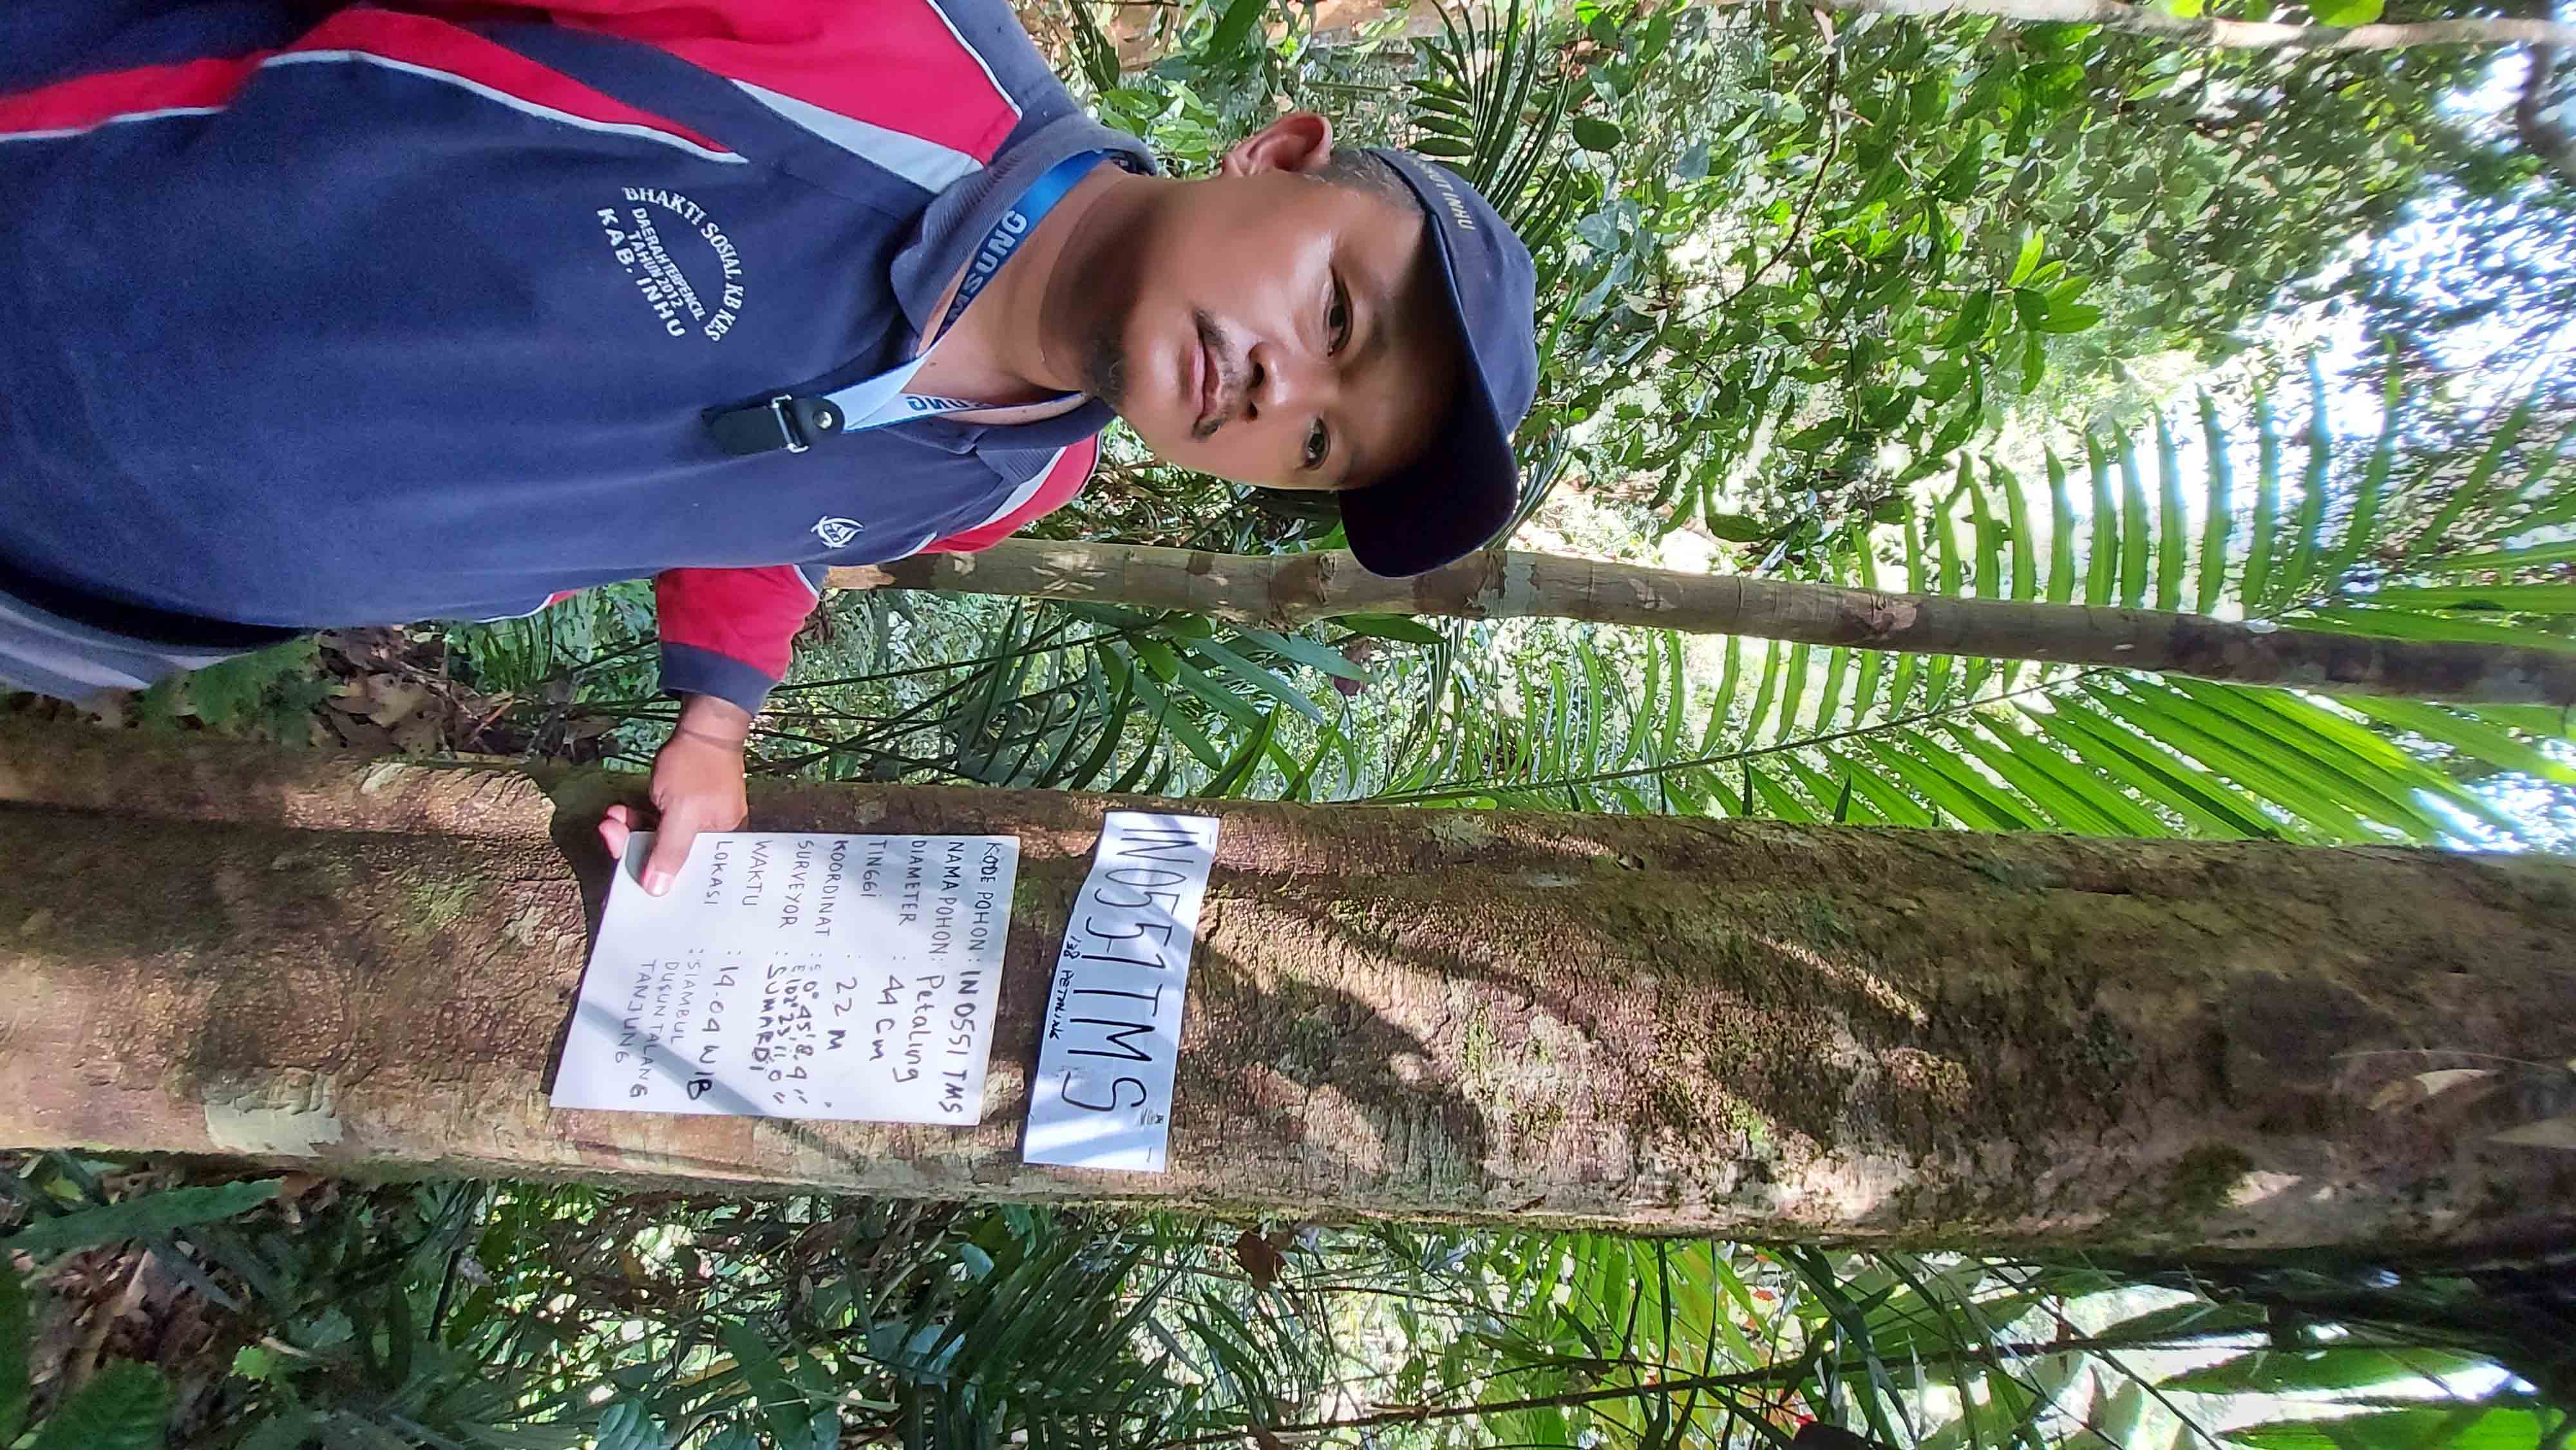 INHU
IN0551TMS
138 PETALING
KODE POHON : IN 0551 TMS
NAMA POHON : Petaling
DIAMETER : 44 Cm
TINGGI : 22 M
KOORDINAT : S 0° 45' 8.4"
E 102° 23' 11,0"
SURVEYOR : SUMARDI
WAKTU : 14.04 WIB
LOKASI : SIAMBUL
DUSUN TALANG
TANJUNG
BHAKTI SOSIAL KB KES
DAERAH TERPENCIL
TAHUN 2012
KAB. INHU